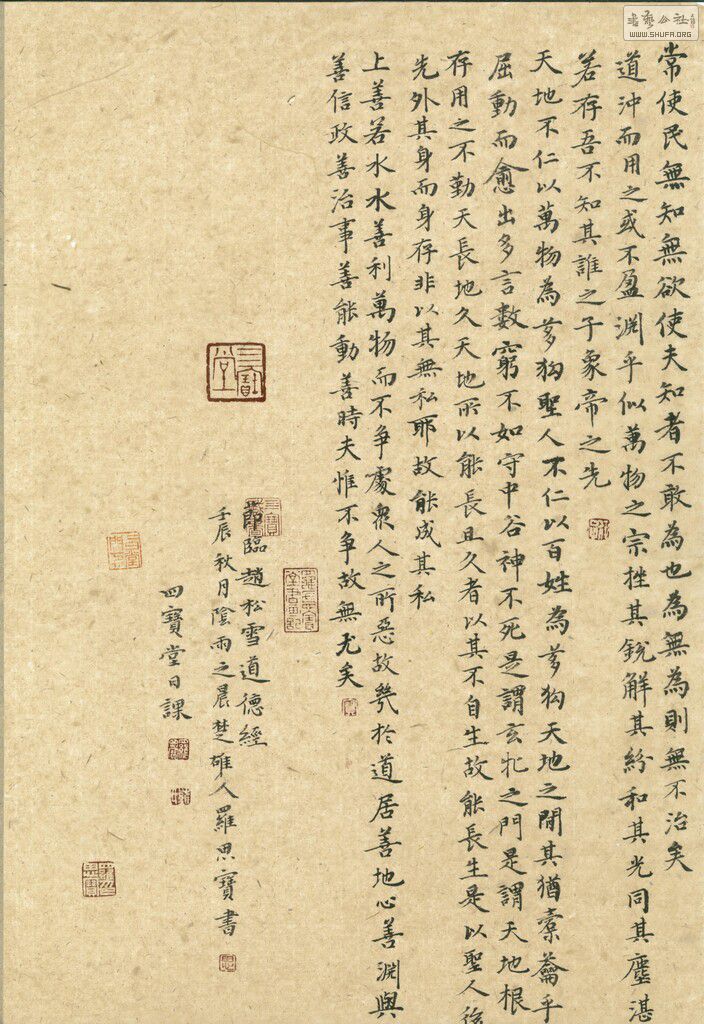 書藝公社
WWW.SHUFA.ORG
常使民無知無欲使夫知者不敢為也為無為則無不治矣
道沖而用之或不盈淵乎似萬物之宗挫其銳解其紛和其光同其塵湛
若存吾不知其誰之子象帝之先
天地不仁以萬物為芻狗聖人不仁以百姓為芻狗天地之閒其猶橐籥乎
屈動而愈出多言數窮不如守中谷神不死是謂玄牝之門是謂天地根
存用之不勤天長地久天地所以能長且久者以其不自生故能長生是以聖人後
先外其身而身存非以其無私耶故能成其私
上善若水水善利萬物而不争處眾人之所惡故幾於道居善地心善淵與
善信政善治事善能動善時夫惟不争故無尤矣
節臨趙松雪道德經
壬辰秋月陰雨之晨楚雄人羅思寶書
四寶堂日課